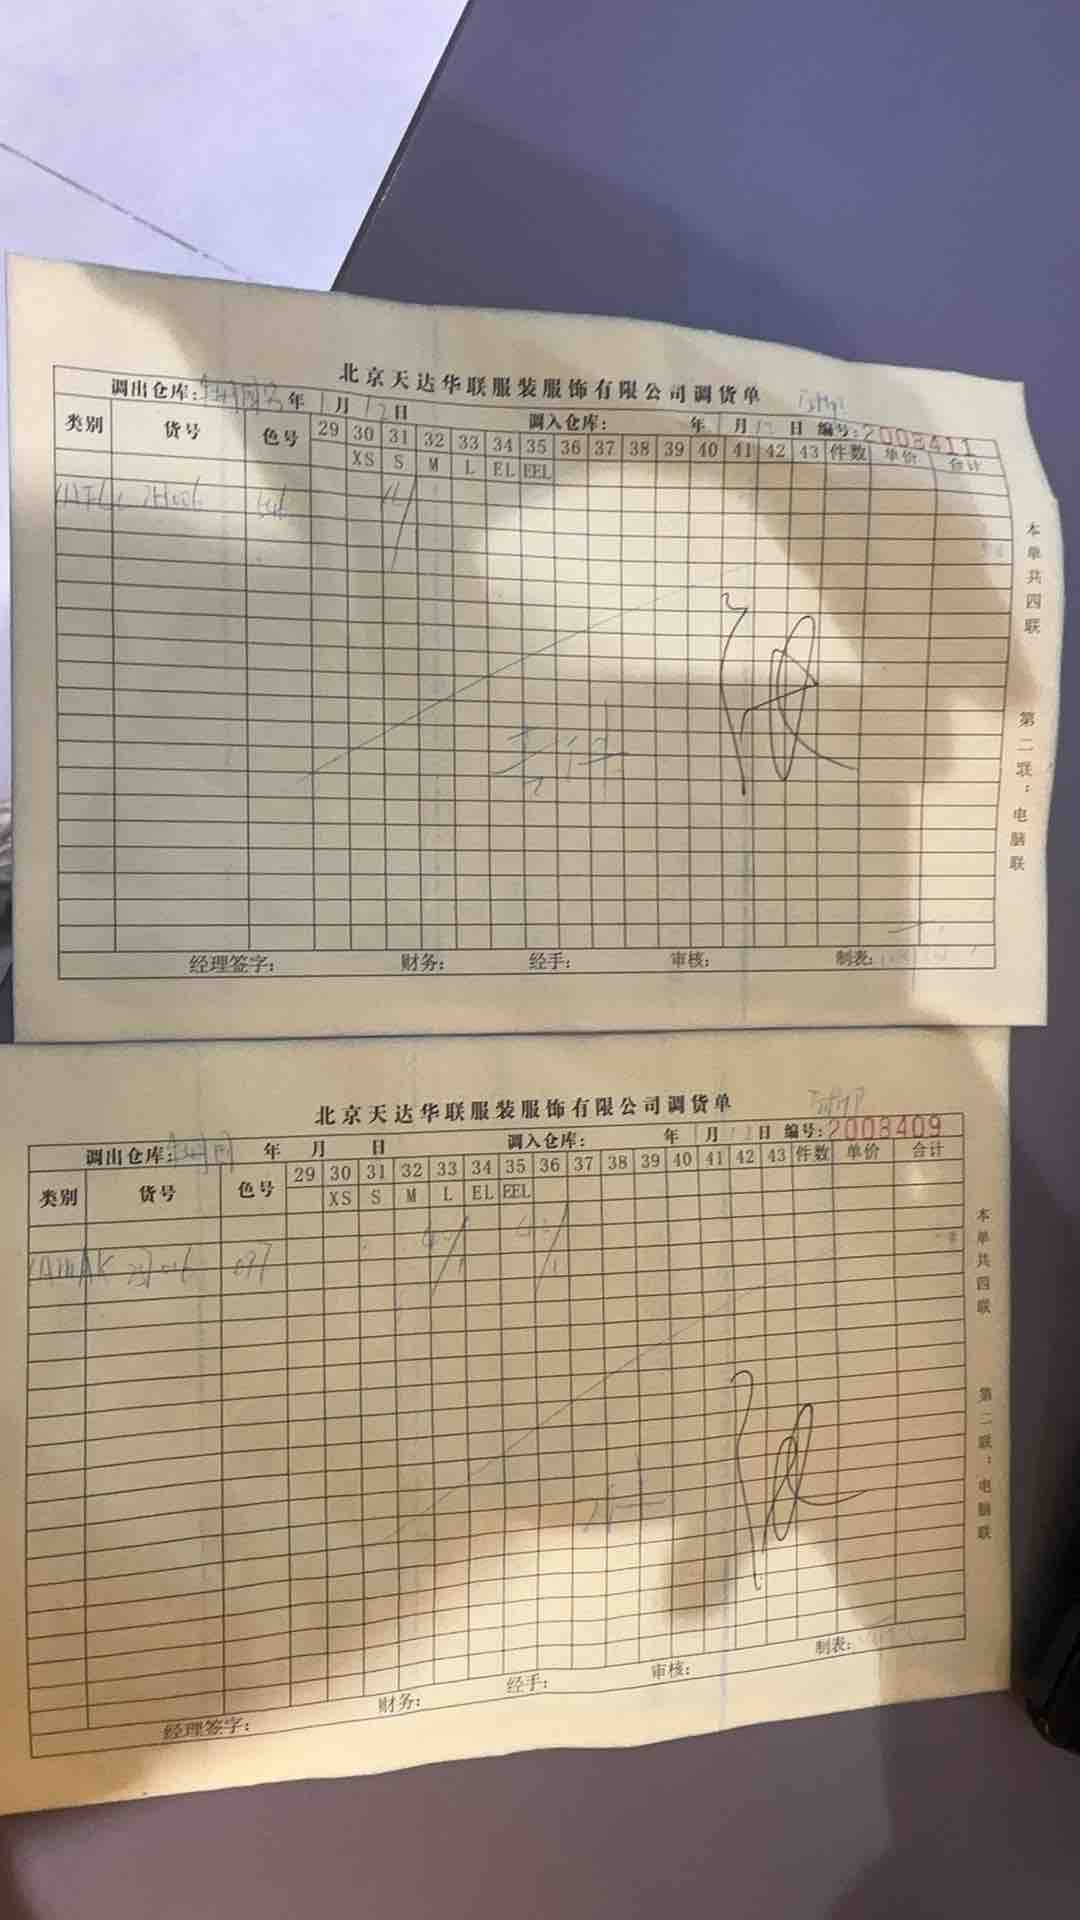 北京天达华联服装服饰有限公司调货单
调出仓库: 年 1月 12日 调入仓库: 年 月 日 编号:2008411
类别 货号 色号 29 30 31 32 33 34 35 36 37 38 39 40 41 42 43 件数 单价 合计
XS S M L EL EEL
本单共四联
第二联:电脑联
经理签字: 财务: 经手: 审核: 制表:
北京天达华联服装服饰有限公司调货单
调出仓库: 年 月 日 调入仓库: 年 月 日 编号:2008409
类别 货号 色号 29 30 31 32 33 34 35 36 37 38 39 40 41 42 43 件数 单价 合计
XS S M L EL EEL
097
本单共四联
第二联:电脑联
经理签字: 财务: 经手: 审核: 制表: